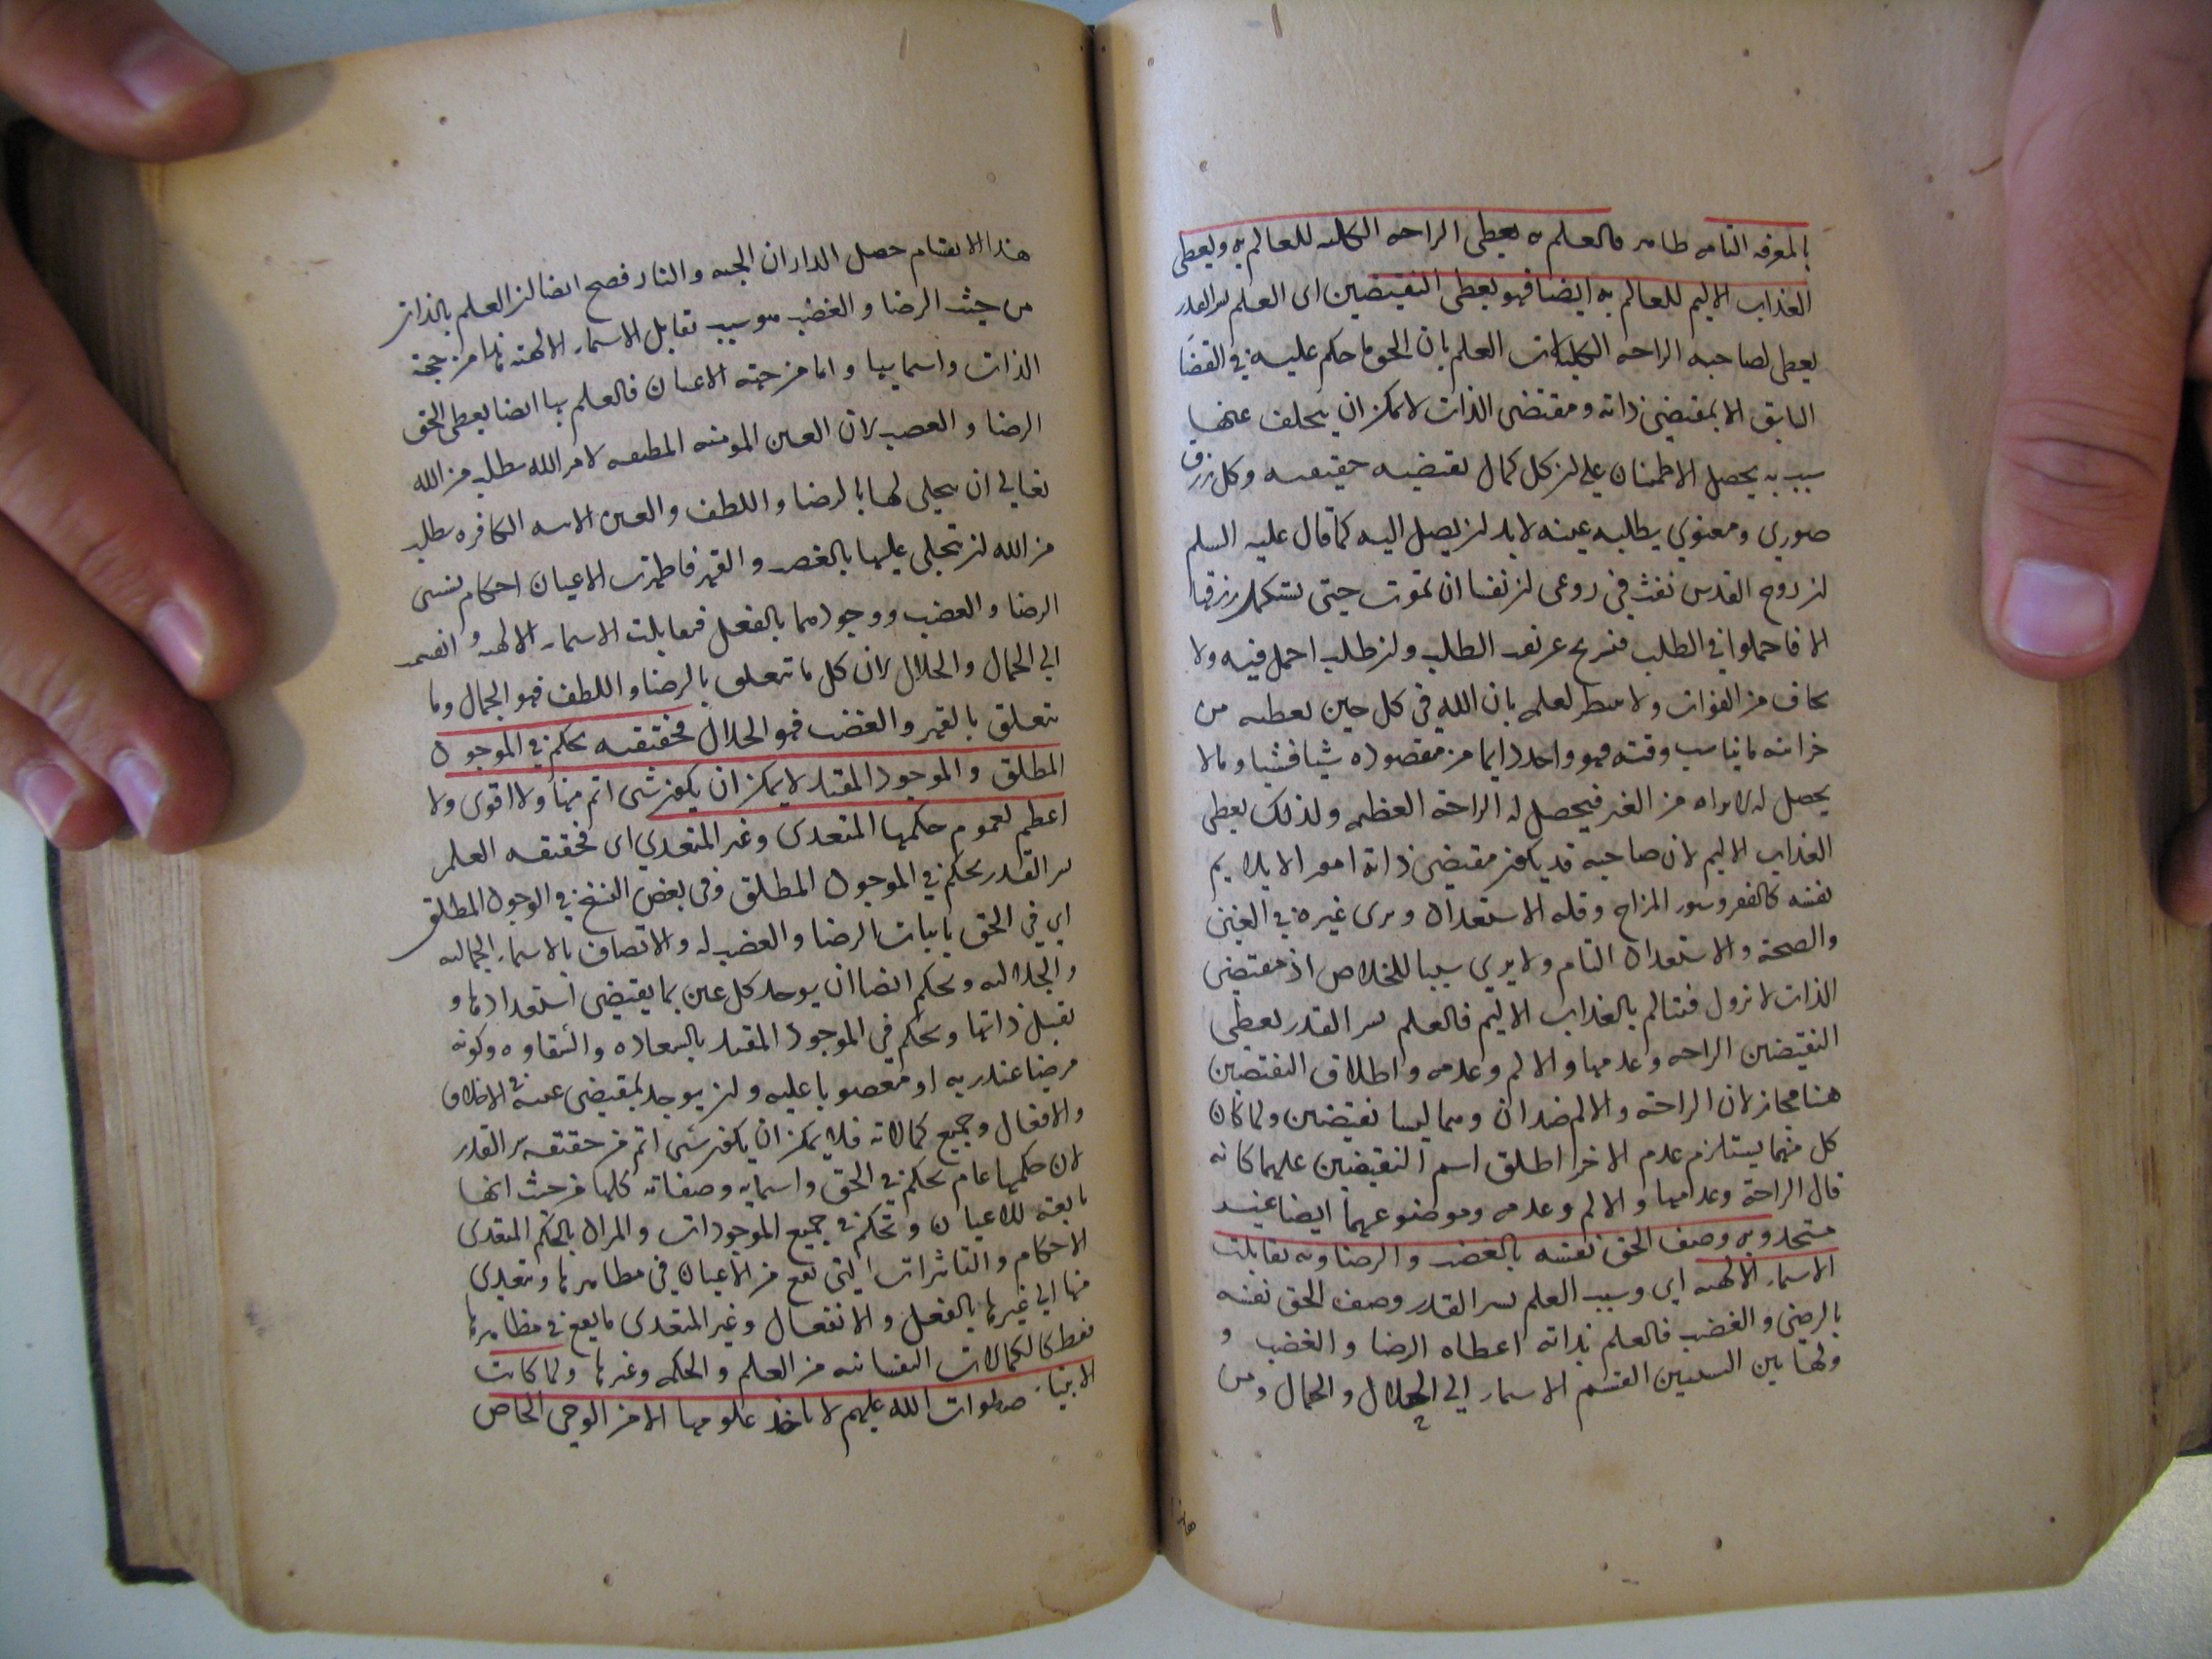 بالمعرفه التامه ظاهر فالعلم به يعطى الراحه الكليه للعالم به ويعطى
العذاب الاليم للعالم به ايضا فهو يعطى النقيضين اى العلم بسر القدر
يعطى لصاحبه الراحه الكليه العلم بان الحق ما حكم عليه في القضا
السابق الا بمقتضى ذاته ومقتضى الذات لا يمكن ان يتخلف عنها
سبب به يحصل الاطمئنان على ان كل كمال تقتضيه حقيقته وكل رزق
صوري ومعنوي يطلبه عينه لا بد ان يصل اليه كما قال عليه السلم
ان روح القدس نفث في روعى ان نفسا ان تموت حتى تستكمل رزقها
الا فاجملوا في الطلب فنريح عن تعب الطلب وان طلب اجمل فيه ولا
يخاف من الفوات ولا ينتظر لعلمه بان الله في كل حين يعطيه من
خزائنه ما يناسب وقته فهو واجد دايما من مقصوده شيا فشيا وما لا
يحصل له لا يراه من الغير فيحصل له الراحة العظيمه ولذلك يعطى
العذاب الاليم لان صاحبه قد يكون مقتضى ذاته امورا لا يلايم
نفسه كالفقر وسوء المزاج وقله الاستعداد ويرى غيره في الغنى
والصحة والاستعداد التام ولا يرى سببا للخلاص اذ مقتضى
الذات لا تزول فيتالم بالعذاب الاليم فالعلم بسر القدر يعطى
النقيضين الراحه وعدمها والالم وعدمه واطلاق النقيضين
هنا مجاز لان الراحة والالم ضدان وهما ليسا نقيضين ولما كان
كل منهما يستلزم عدم الاخر اطلق اسم النقيضين عليهما كانه
قال الراحة وعدمها والالم وعدمه وموضوعهما ايضا غير
متحد وبه وصف الحق نفسه بالغضب والرضا وبه تقابلت
الاسماء الالهيه اي وبسبب العلم بسر القدر وصف الحق نفسه
بالرضى والغضب فالعلم بذاته اعطاه الرضا والغضب و
ولهتا بين النسبتين انقسم الاسماء الى الجلال والجمال ومن
هذا الانقسام حصل الداران الجنه والنار فصح ايضا ان العلم بالذات
من حيث الرضا والغضب هو سبب تقابل الاسماء الالهيه هذا من جهة
الذات واسمايها واما من جهة الاعيان فالعلم بها ايضا يعطى الحق
الرضا والغضب لان العين المومنه المطيعه لامر الله يطلب من الله
تعالى ان يتجلى لها بالرضا واللطف والعين الابيه الكافره يطلب
من الله ان يتجلى عليها بالغضب والقهر فاظهرت الاعيان احكام نسبتى
الرضا والغضب ووجودهما بالفعل فتقابلت الاسماء الالهيه وانقسمت
الى الجمال والجلال لان كل ما تتعلق بالرضا واللطف فهو الجمال وما
تتعلق بالقهر والغضب فهو الجلال فحقيقته تحكم في الموجود
المطلق والموجود المقيد لا يمكن ان يكون شى اتم منها ولا اقوى ولا
اعظم لعموم حكمها المتعدى وغير المتعدي اى فحقيقه العلم
بسر القدر تحكم في الموجود المطلق وفى بعض النسخ في الوجود المطلق
اي في الحق باثبات الرضا والغضب له والاتصاف بالاسماء الجماليه
والجلاليه وتحكم ايضا ان يوجد كل عين بما يقتضى استعدادها و
تقبل ذاتها وتحكم في الموجود المقيد بالسعاده والشقاوه وكونه
مرضيا عند ربه او مغضوبا عليه وان يوجد بمقتضى عينه في الاخلاق
والافعال وجميع كمالاته فلا يمكن ان يكون شى اتم من حقيقه سر القدر
لان حكمها عام تحكم في الحق واسمايه وصفاته كلها من حيث انها
تابعة للاعيان وتحكم في جميع الموجودات والمراد بالحكم المتعدى
الاحكام والتاثيرات التى تقع من الاعيان في مظاهرها ومتعدى
منها الى غيرها بالفعل والانفعال وغير المتعدى ما يقع في مظاهرها
فقط كالكمالات النفسانيه من العلم والحكمه وغيرها ولما كانت
الانبياء صلوات الله عليهم لا تاخذ علومها الا من الوحى الخاص